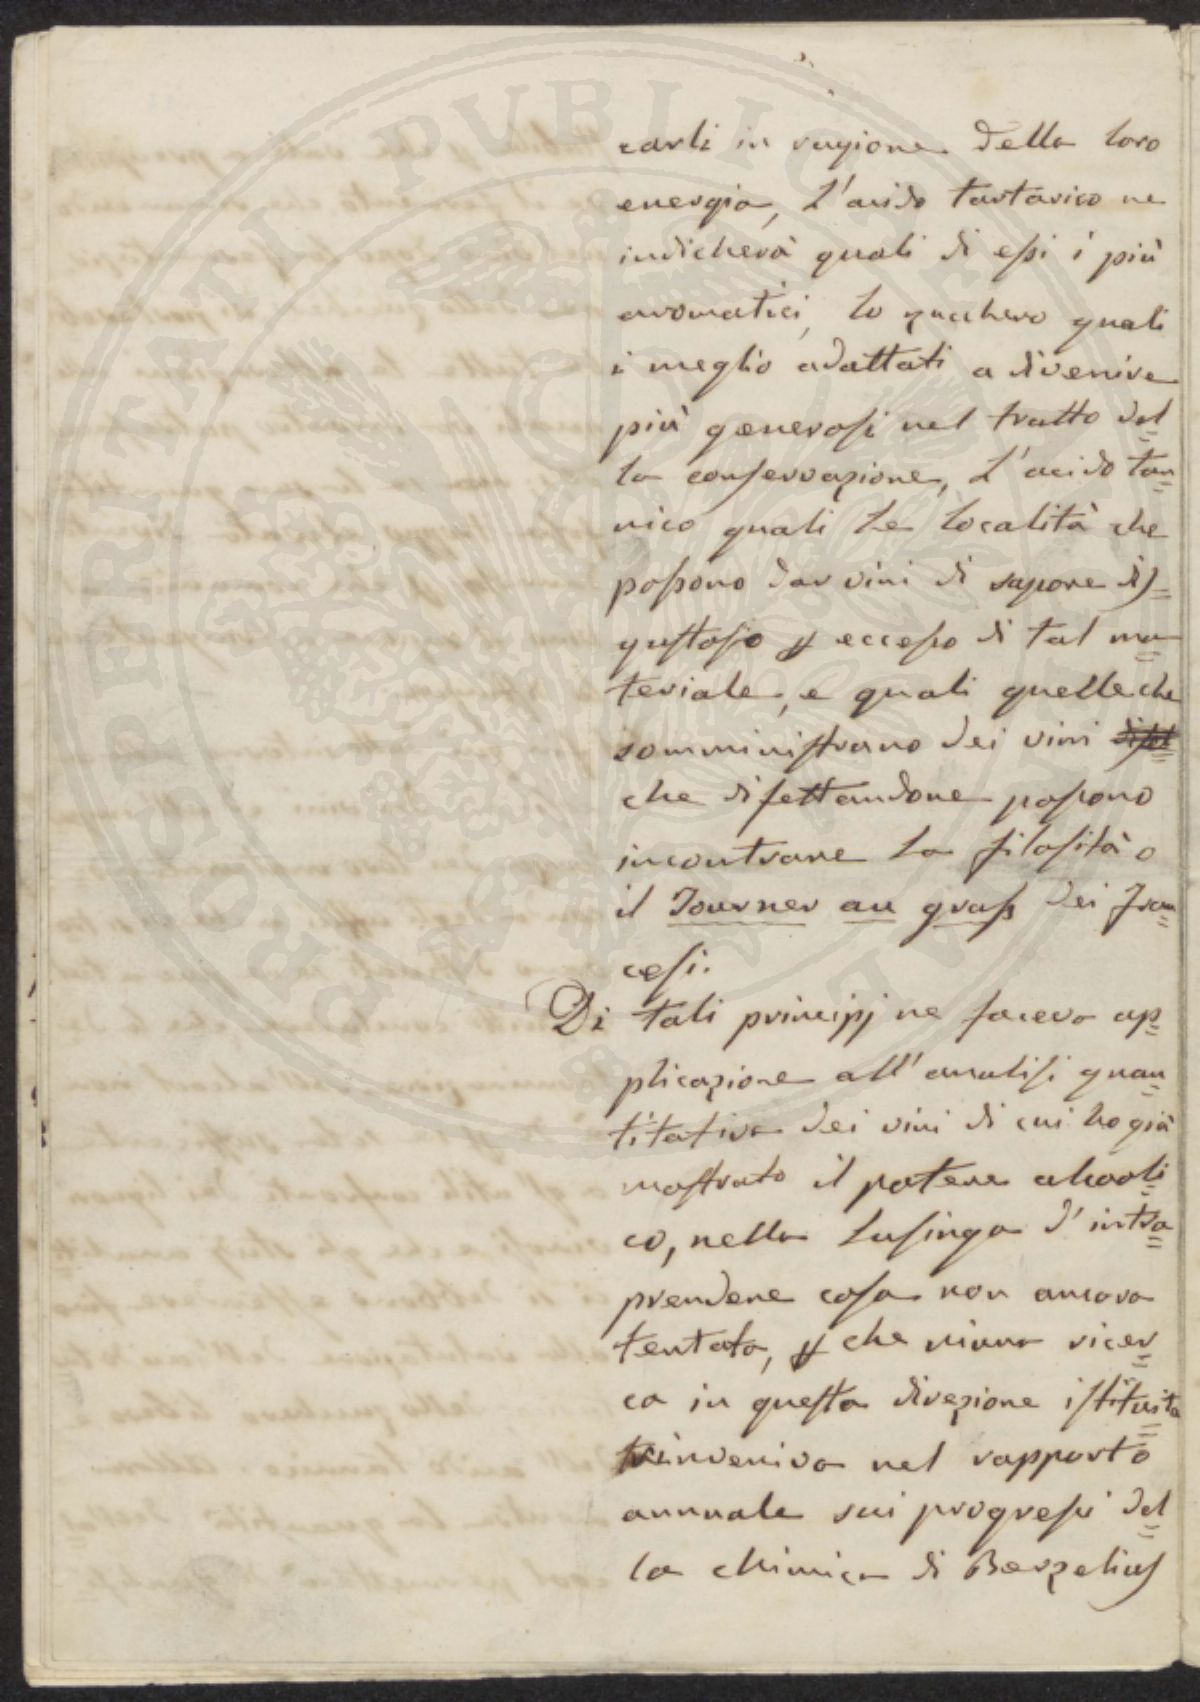 carli in ragione della loro
energia, l'acido tartarico ne
indicherà quali di essi i più
aromatici, lo zucchero quali
i meglio adattati a divenire
più generosi nel tratto del=
la conservazione, l'acido tan=
nico quali le località che
possono dar vini di sapore dis=
gustoso p eccesso di tal ma=
teriale, e quali quelle che
somministrano dei vini
che difettandone possono
incontrare la filosità o
il Tourner au grass dei fran=
cesi.
Di tali principj ne faceva ap=
plicazione all'analisi quan=
titativa dei vini di cui ho già
mostrato il potere alcooli=
co, nella lusinga d'intra=
prendere cosa non ancora
tentata, p che niuna ricer=
ca in questa direzione istituita
rinveniva nel rapporto
annuale sui progressi del=
la chimica di Berzelius
PROSPERITATI PUBLICAE